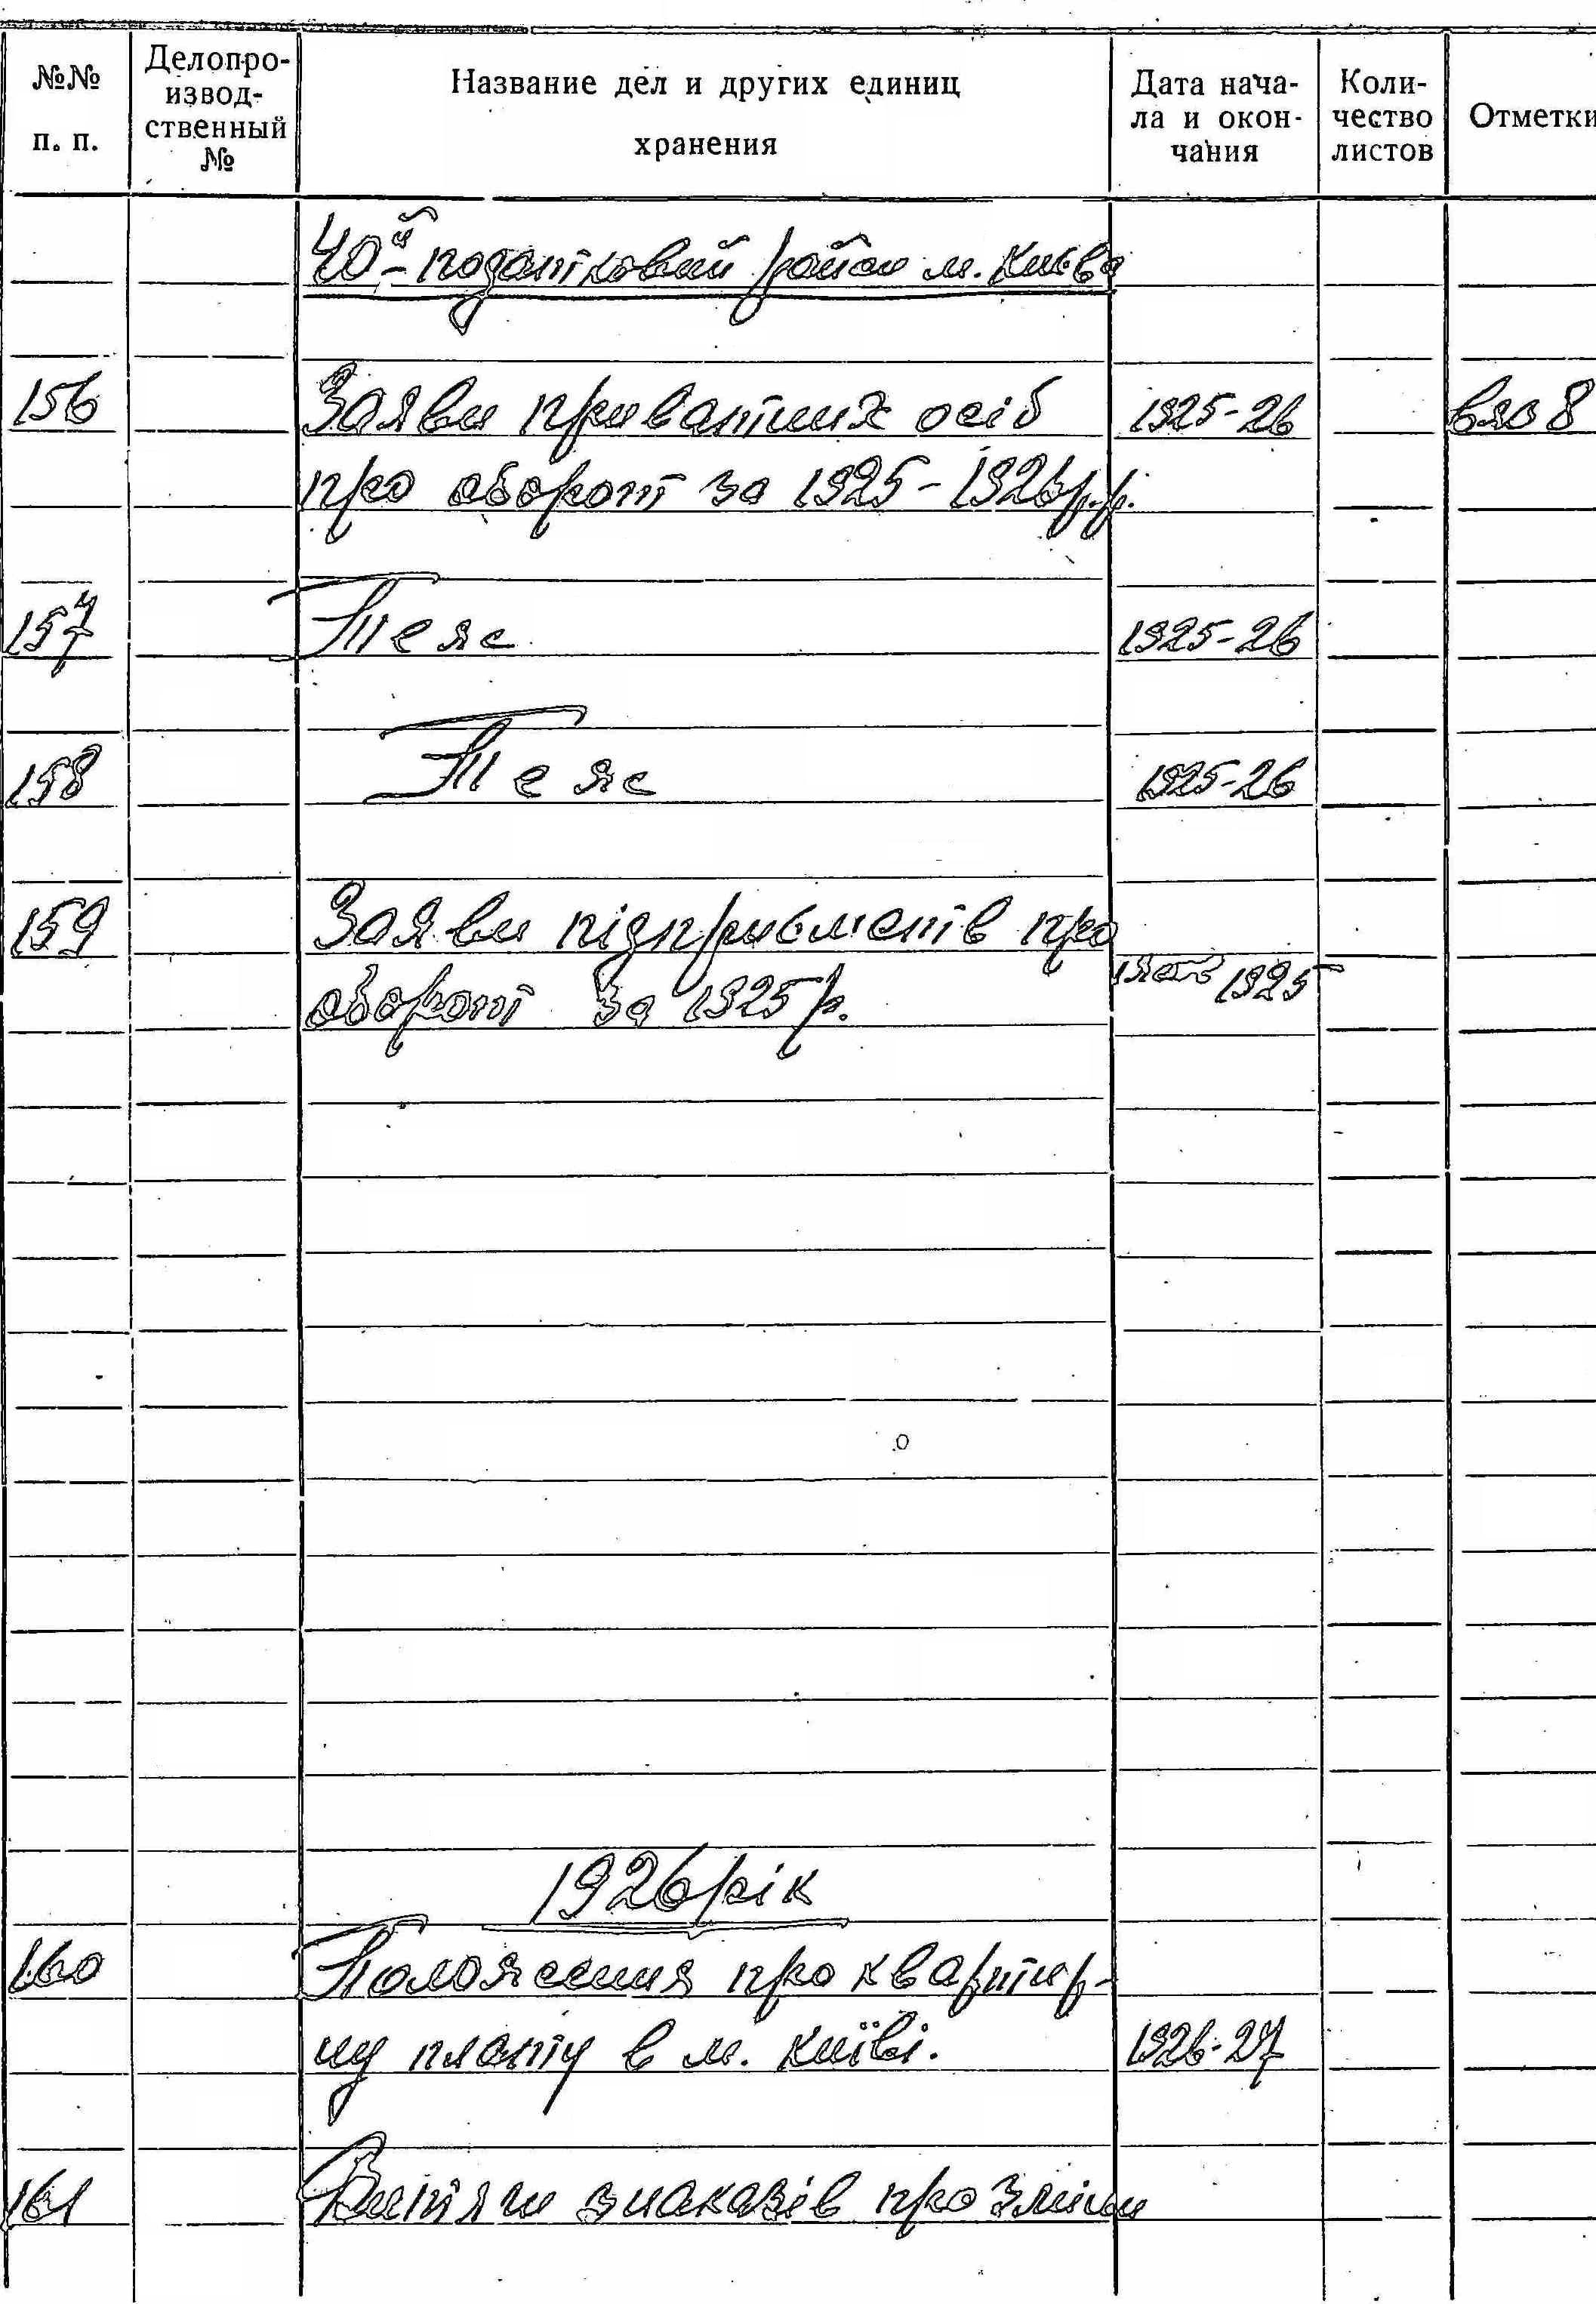 №№ п. п.
Делопро-
извод-
ственный
№
Название дел и других единиц
хранения
Дата нача-
ла и окон-
чания
Коли-
чество
листов
Отметки
40й - податковий район м. Києва
156 Заяви приватних осіб 1925-26
про оборот за 1925-1926р.р.
157 Теж 1925-26
158 Теж 1925-26
159 Заяви підприємств про
оборот за 1925 р. 1925
1926 рік
160 Положення про квартир-
ну плату в м. Київі. 1926-27
161 Витяги з наказів про зміни